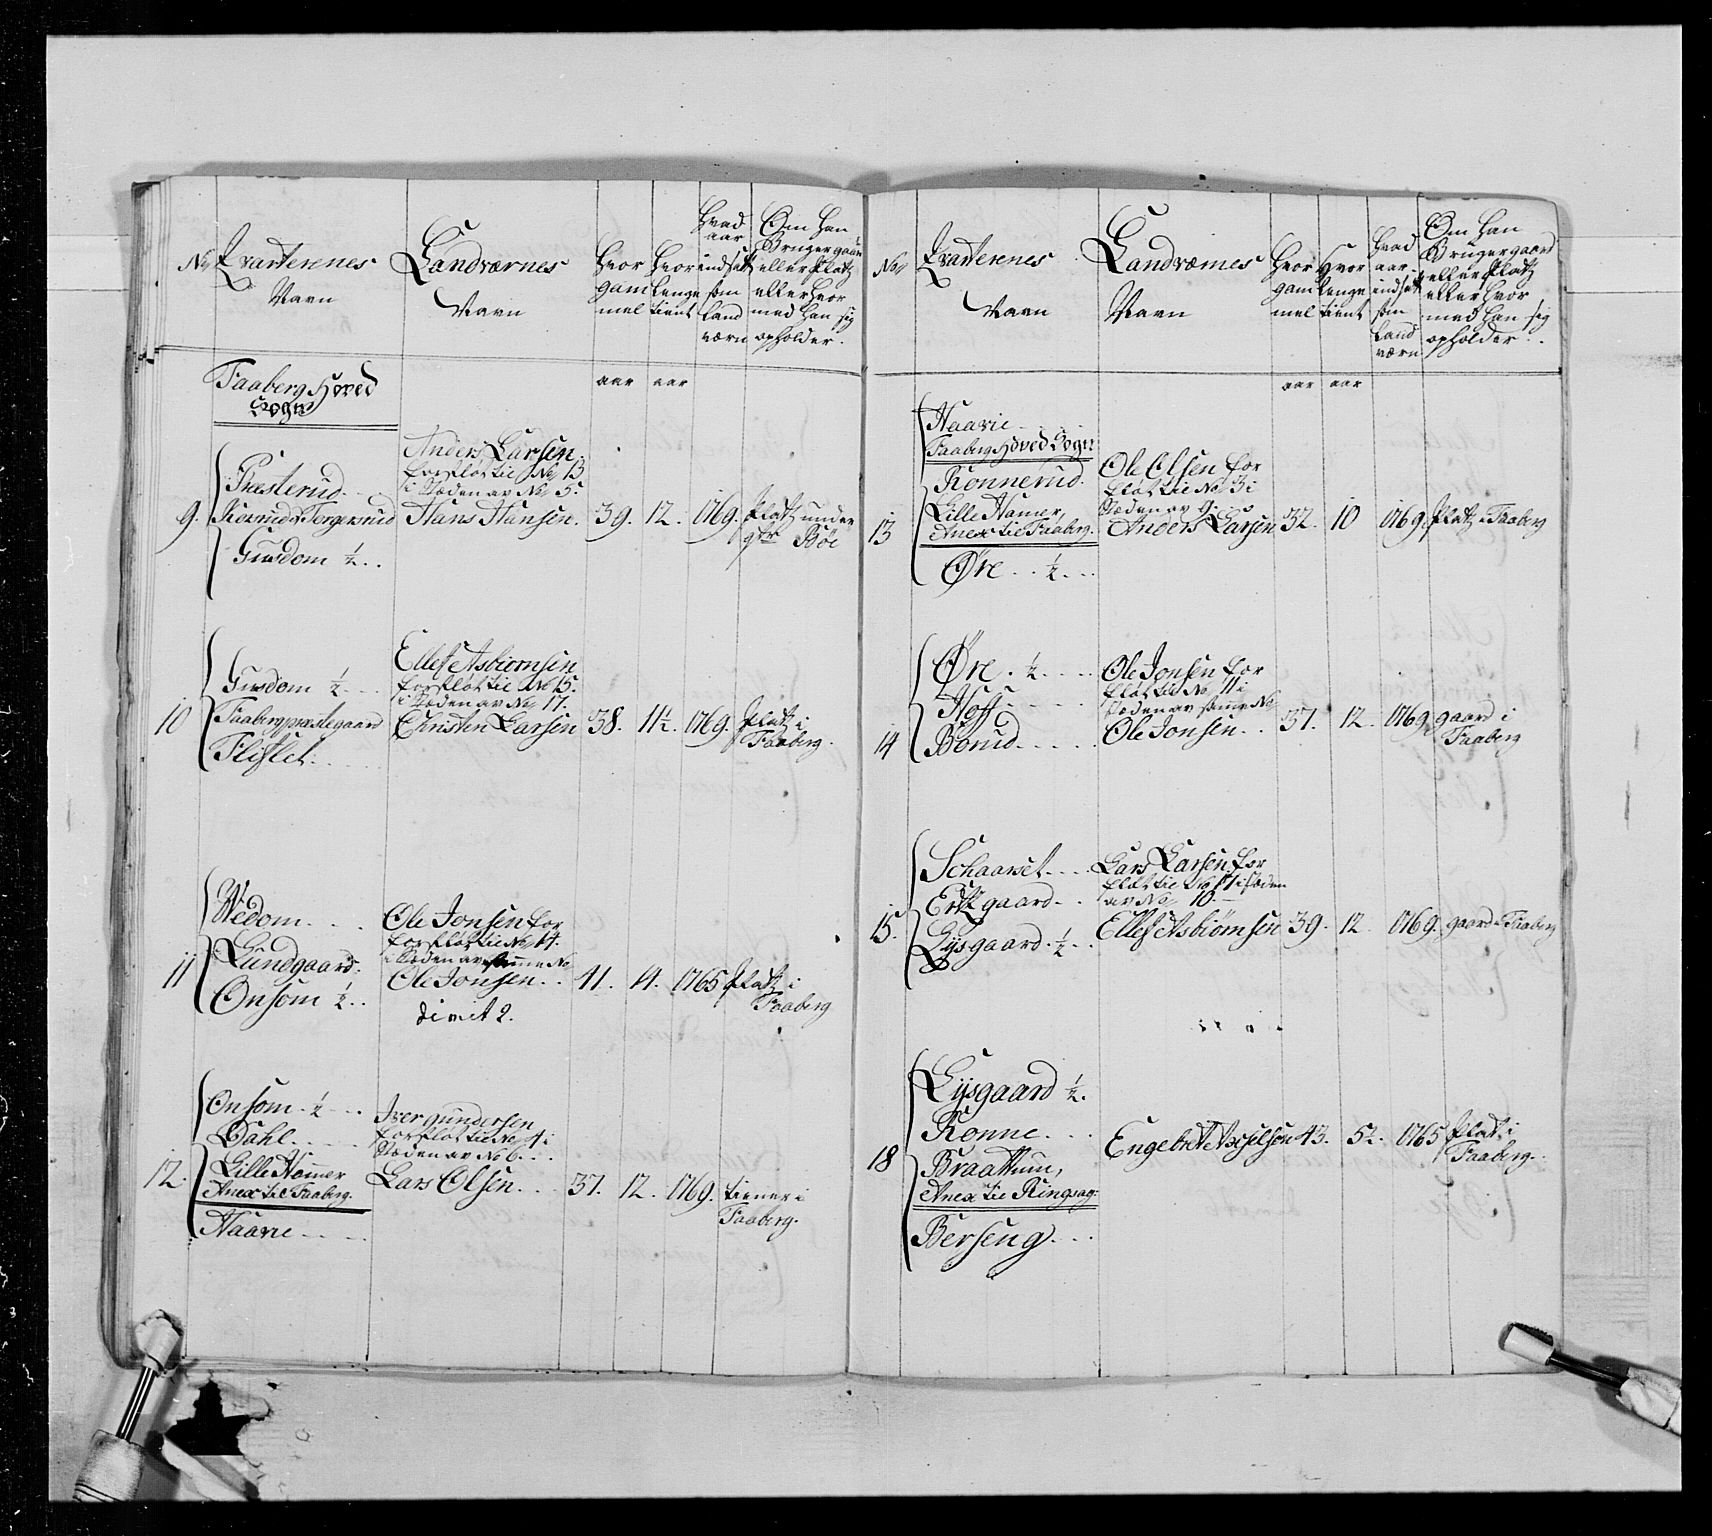 No/ Qvarterenes
Navn
Landværnes
Navn
Hvor
gam
mel
Hvor
lenge
tient
Hvad
aar
indsatt
som
Land
værn
Om han
Bruger gaard
eller Platz
eller hvor
med han sig
opholder.
aar aar
Faaberg Hoved
Sogn
9.
Presterud.
Riersrud & Torgersrud
Gusdom ½..
Anders Larsen.
forfløt til No 13
i Stæden av No 5.
Hans Hansen. 39. 12. 1769. Platz under
gdr Böe
10
Gusdom ½...
Faabergpræstegaard
Flifslet.
Ellef Asbiørnsen
forfløt til No 15.
i Stæden av No 17.
Christen Larsen 38. 11½. 1769. Platz i
Faaberg.
11
Wedom....
Lundgaard.
Onsom ½..
Ole Jonsen for
forfløt til No 14.
i Stæden av samme No
Ole Jonsen.. 41. 14. 1765 Platz i
Faaberg
dimit 2.
12.
Onsom. ½...
Dahl....
Lille Hamer
Anex til Faaberg.
Haavie....
Iver gundersen
forfløt til No 4 i
Stæden av No 6...
Lars Olsen... 37. 12. 1769. tiener i
Faaberg.
No/ Qvarterenes
Navn
Landværnes
Navn
Hvor
gam
mel
Hvor
lenge
tient
Hvad
aar
indsatt
som
Land
værn
Om han
Bruger gaard
eller Platz
eller hvor
med han sig
opholder..
aar aar
13
Haavie...
Faaberg Hoved Sogn
Ronnerud.
Lille Hamer,
Anex til Faaberg.
Øre.. ½...
Ole Olsen for
fløt til No 3 i
Stæden av 9.
Anders Larsen 32. 10 1769. Platz i Faaberg
14
Øre. ½....
Hoff.....
Borud.....
Ole Jonsen for
fløt til No 11 i
Stæden av samme No
Ole Jonsen.. 37. 12. 1769 gaard i
Faaberg
15.
Schaarset....
Ertzgaard...
Lysgaard. ½..
Lars Larsen for
fløt til No 17 i Stæden
av No 10.
Ellef Asbiørnsen 39. 12. 1769. gaard i Faaberg
18
Lysgaard ½.
Ronne....
Braattum,
Anex til Ringsag.
Berseng...
Engebret Axselsøn 43. 52. 1765 Platz i
Faaberg.